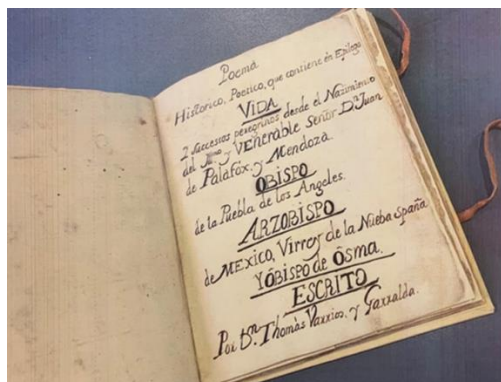 Poema
Historico, Poetico, que contiene en Epilogo
VIDA
y successos peregrinos desde el Nazimiento
del Ill.mo y VEnerable Señor Dn. Juan
de Palafox, y Mendoza.
OBISPO
de la Puebla de los Angeles.
ARZOBISPO
de MEXICO, Virrey de la Nueba España
Y OBISPO de OSMA.
ESCRITO
Por Dn. Thomàs Varrios, y Garralda.